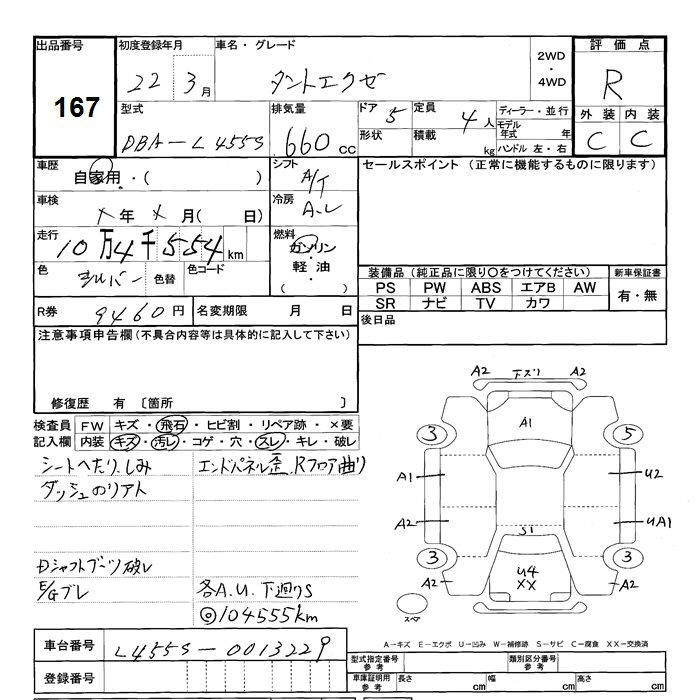 出品番号 初度登録年月 車名・グレード 2WD・4WD 評価点
167 22 3月 タントエクゼ R
型式 排気量 ドア 5 定員 4人 ディーラー・並行 外装 内装
DBA-L455S 660cc 形状 積載 kg モデル年式 年 ハンドル 左・右 C C
車歴 自家用・( ) シフト A/T セールスポイント (正常に機能するものに限ります)
車検 年 月( 日) 冷房
走行 10万4千554km 燃料 ガソリン・軽油・( )
色 シルバー 色替 色コード
装備品 (純正品に限り○をつけてください) 新車保証書
PS PW ABS エアB AW 有・無
SR ナビ TV カワ
R券 9460円 名変期限 月 日 後日品
注意事項申告欄 (不具合内容等は具体的に記入して下さい)
修復歴 有 〔箇所 〕
検査員記入欄 FW キズ・飛石・ヒビ割・リペア跡・×要
内装 キズ・汚レ・コゲ・穴・スレ・キレ・破レ
シートへたり、しみ エンドパネル歪、Rフロア曲り
ダッシュのリアト
Dシャフトブーツ破レ
E/Gブレ 各A.U. 下廻りS
◎104555km
A2 下ズリ A2
3 A1 5
A1 U2
A2 S1 UA1
3 3
A2 U4 XX A2
スペア
車台番号 L455S-0013229
A-キズ E-エクボ U-凹み W-補修跡 S-サビ C-腐食 XX-交換済
型式指定番号 参考 類別区分番号 参考
登録番号 車庫証明用 参考 長さ cm 幅 cm 高さ cm